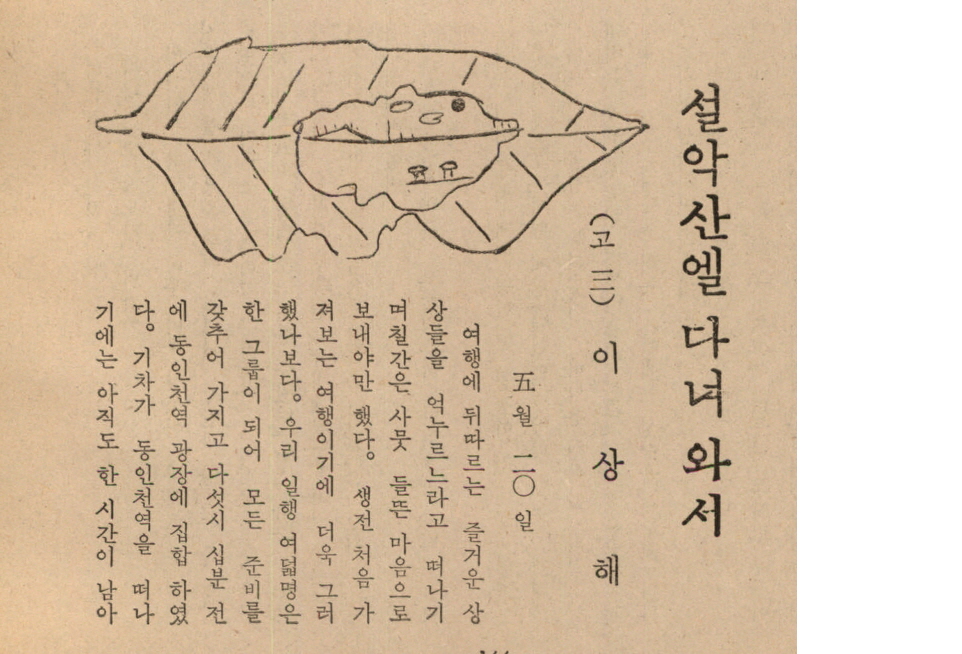 설악산엘 다녀와서
(고 三) 이 상 해
五월 二○일
여행에 뒤따르는 즐거운 상
상들을 억누르느라고 떠나기
며칠간은 사뭇 들뜬 마음으로
보내야만 했다. 생전 처음 가
져보는 여행이기에 더욱 그러
했나보다. 우리 일행 여덟명은
한 그룹이 되어 모든 준비를
갖추어 가지고 다섯시 십분 전
에 동인천역 광장에 집합 하였
다. 기차가 동인천역을 떠나
기에는 아직도 한 시간이 남아